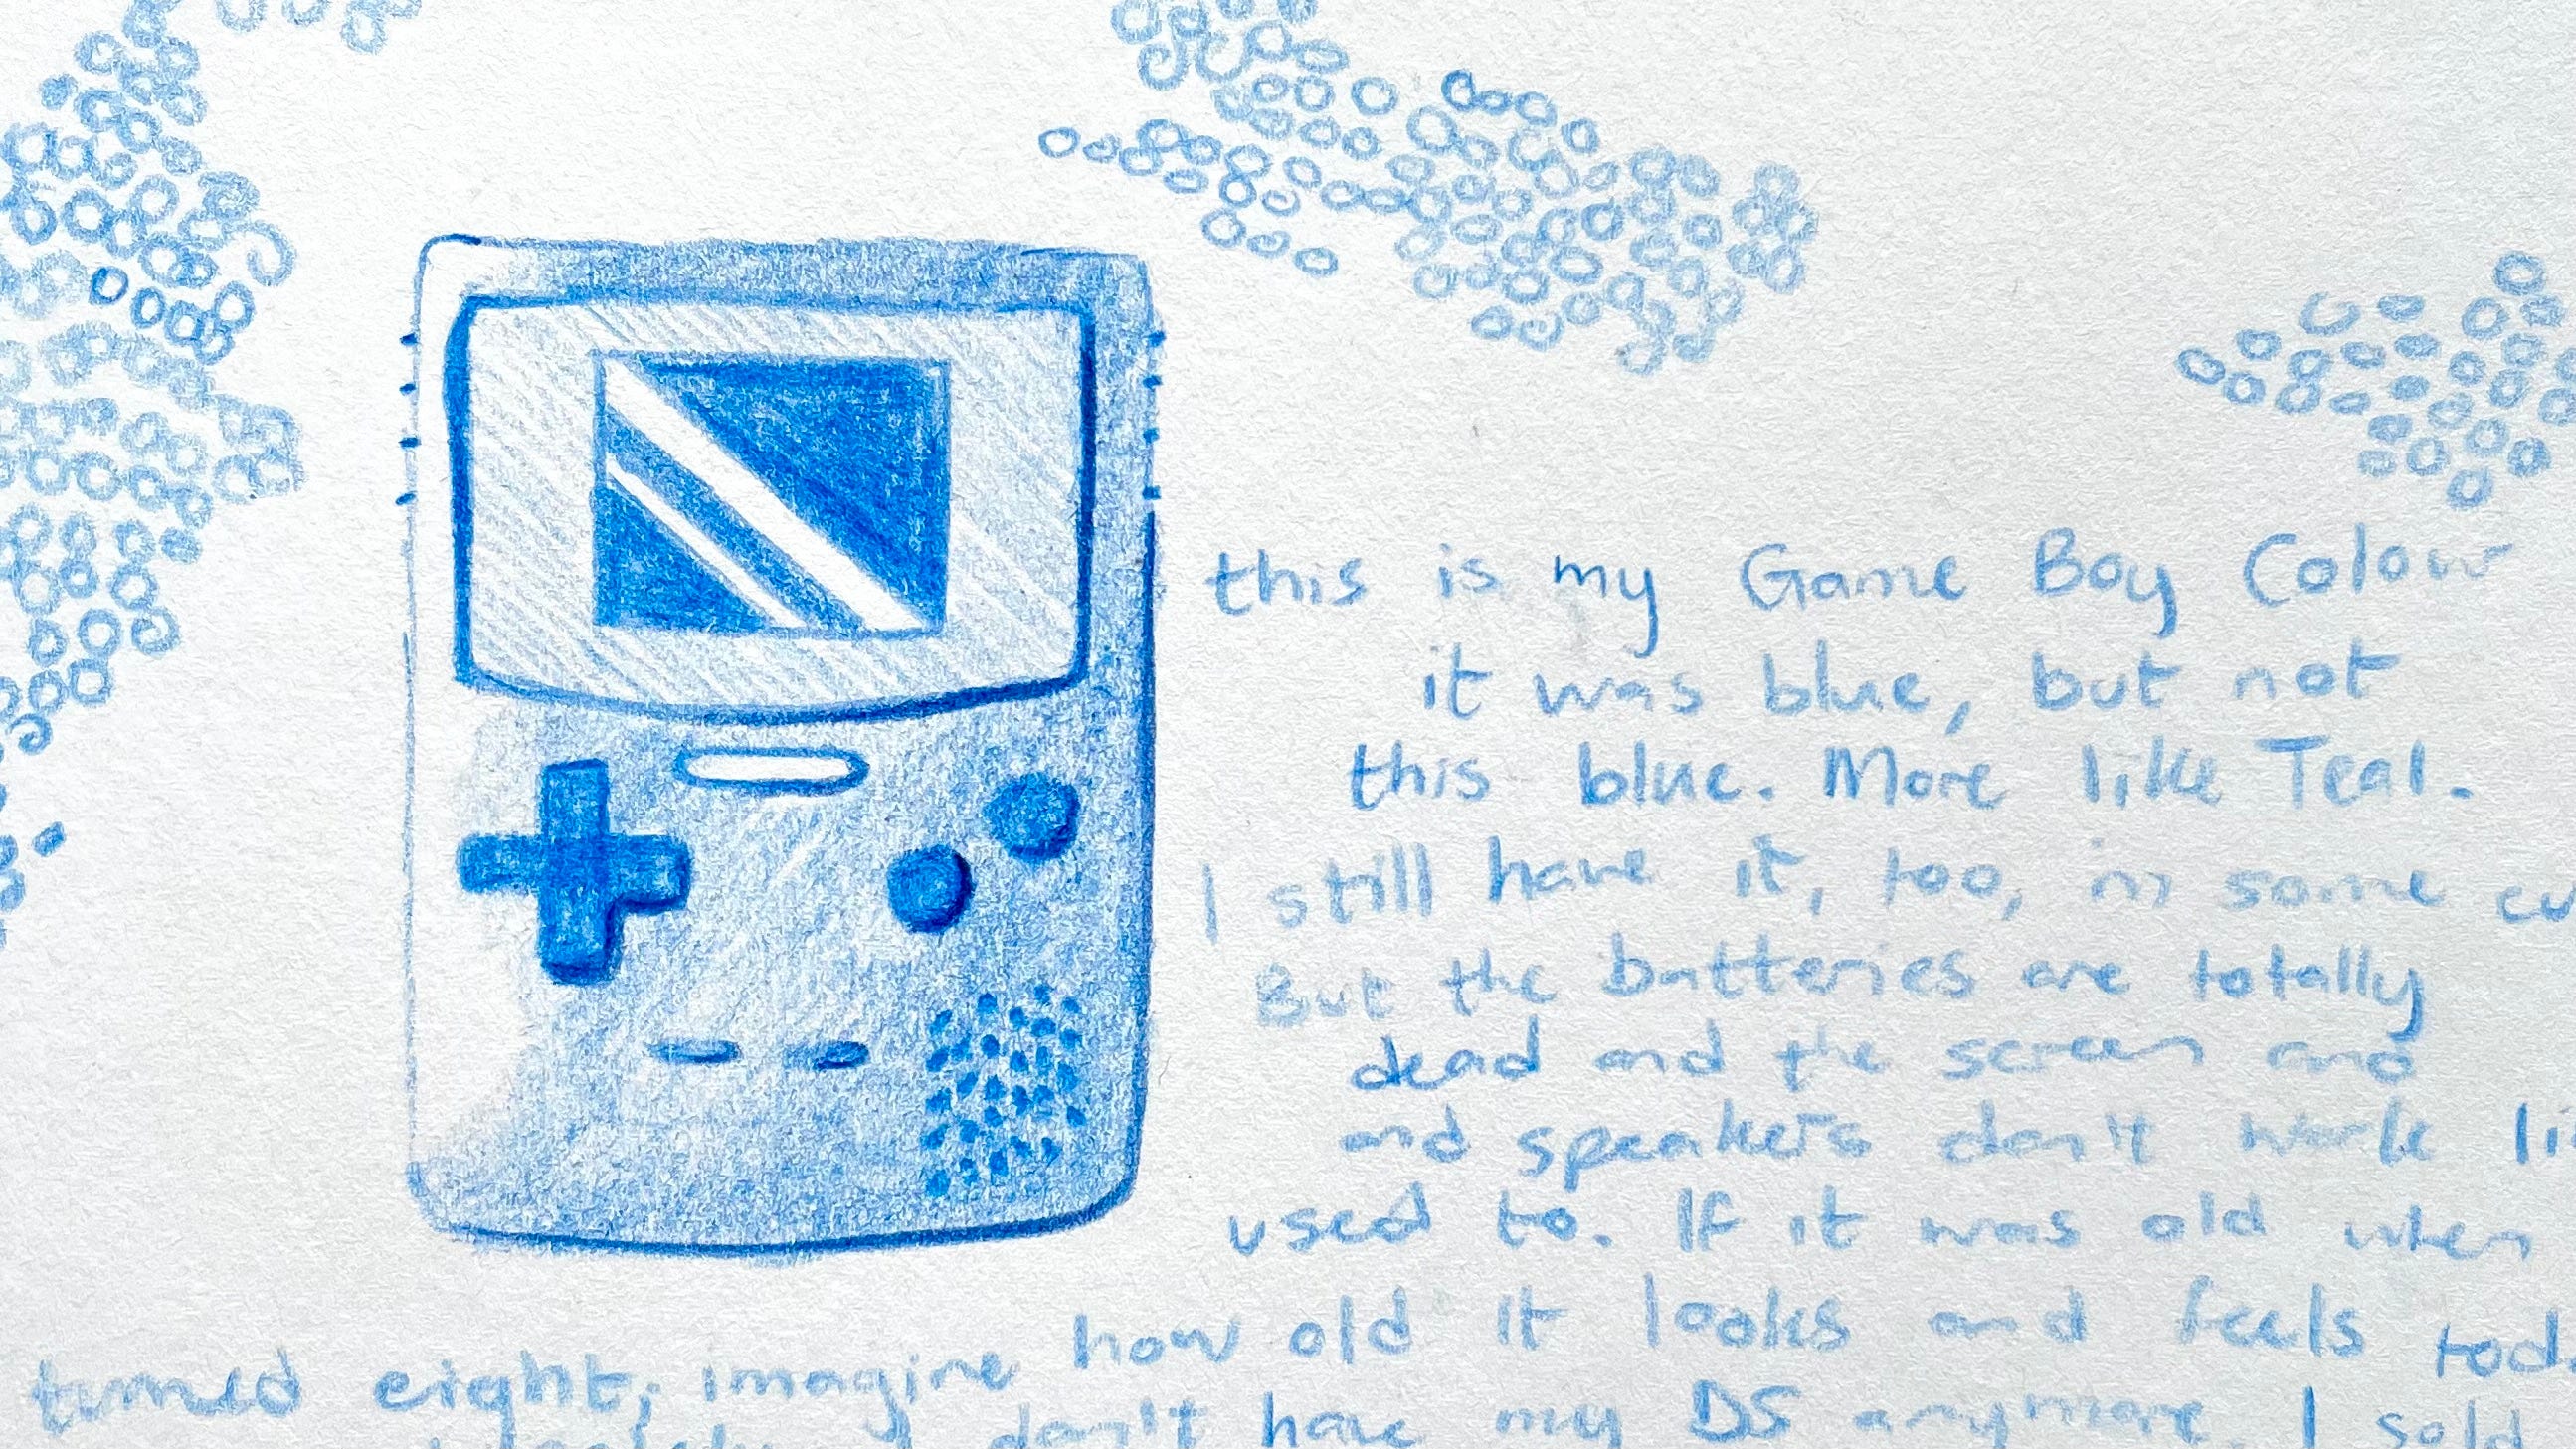 this is my Game Boy Colour
it was blue, but not
this blue. More like Teal.
I still have it, too, in some
But the batteries are totally
dead and the screen and
and speakers don't work
used to. If it was old when
turned eight, imagine how old it looks and feels
I don't have my DS anymore. I sold